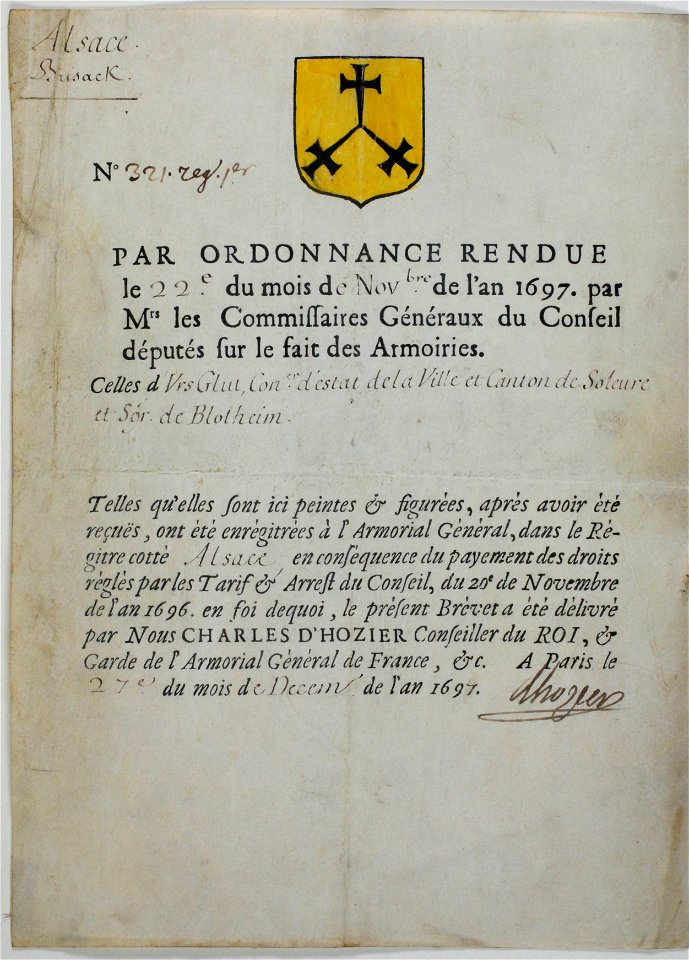 Alsace.
Brisack.
N° 321. reg. 1er
PAR ORDONNANCE RENDUE
le 22e. du mois de Novbre. de l'an 1697. par
Mrs les Commiſſaires Généraux du Conſeil
députés ſur le fait des Armoiries.
Celles d Vrs Glut, Coner d'estat de la Ville et Canton de Soleure
et Sgr. de Blotheim.
Telles qu'elles ſont ici peintes & figurées, aprés avoir été
reçuës, ont été enrégitrées à l'Armorial Général, dans le Ré-
gitre cotté Alsace, en conſéquence du payement des droits
réglés par les Tarif & Arreſt du Conſeil, du 20e de Novembre
de l'an 1696. en foi dequoi, le préſent Brévet a été délivré
par Nous CHARLES D'HOZIER Conſeiller du ROI, &
Garde de l'Armorial Général de France, &c. A Paris le
27e du mois de Decem. de l'an 1697. dhozier